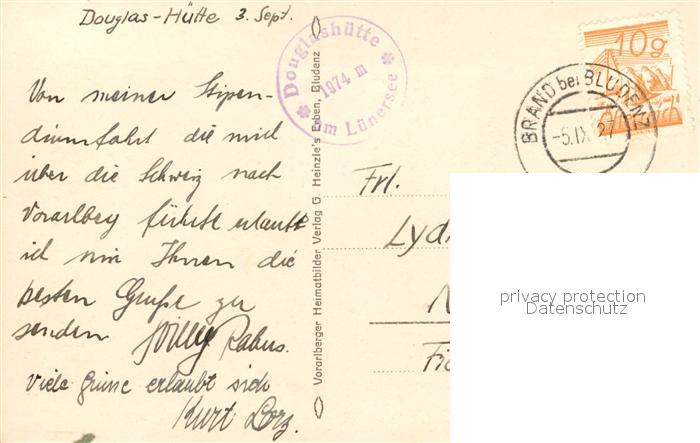 Douglas-Hütte 3. Sept.
Von meiner Stipen-
diumfahrt die mich
über die Schweiz nach
Vorarlberg führt erlaubt
ich mir Ihnen die
besten Grüße zu
senden Willy Rabus.
Viele Grüsse erlaubt sich
Kurt Lorz.
Vorarlberger Heimatbilder Verlag G. Heinzle's Erben, Bludenz
Douglashütte
1974 m
am Lünersee
10g
BRAND bei BLUDENZ
-5.IX.27
Frl.
Lyd
privacy protection
Datenschutz